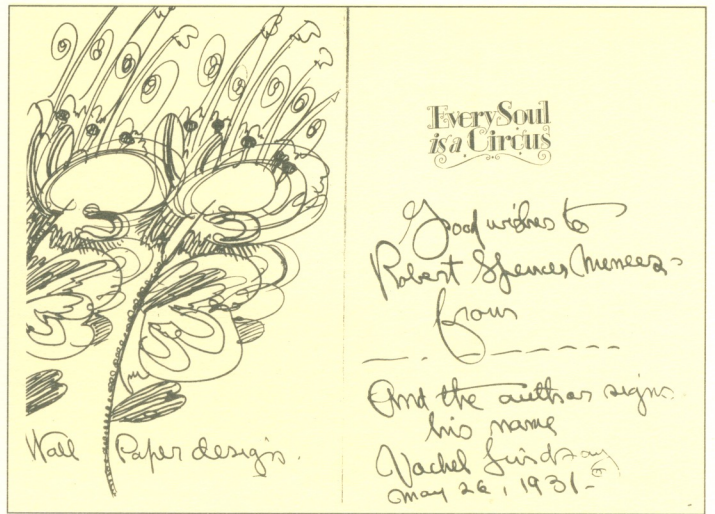 Wall Paper designs.
Every Soul
is a Circus
Good wishes to
Robert Spencer
from
And the author signs
his name
Vachel Lindsay
May 26, 1931-